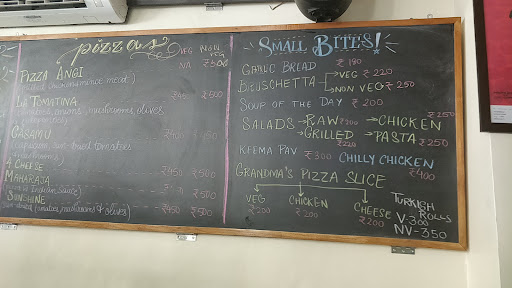 pizzas VEG NON VEG
PIZZA ANQI NA ₹500
LA TOMATINA ₹450 ₹500
olives
CASAMU ₹500
sun-dried tomatoes
4 CHEESE ₹450 ₹500
MAHARAJA ₹500
SUNSHINE ₹450 ₹500
tomatoes, mushrooms & olives)
SMALL BITES!
GARLIC BREAD ₹190
BRUSCHETTA VEG ₹220
NON VEG ₹250
SOUP OF THE DAY ₹200
SALADS → RAW ₹200 → CHICKEN ₹250
→ GRILLED ₹220 → PASTA ₹250
KEEMA PAV ₹300 CHILLY CHICKEN ₹400
GRANDMA'S PIZZA SLICE
VEG ₹200
CHICKEN ₹200
CHEESE ₹200
TURKISH ROLLS
V-300
NV-350